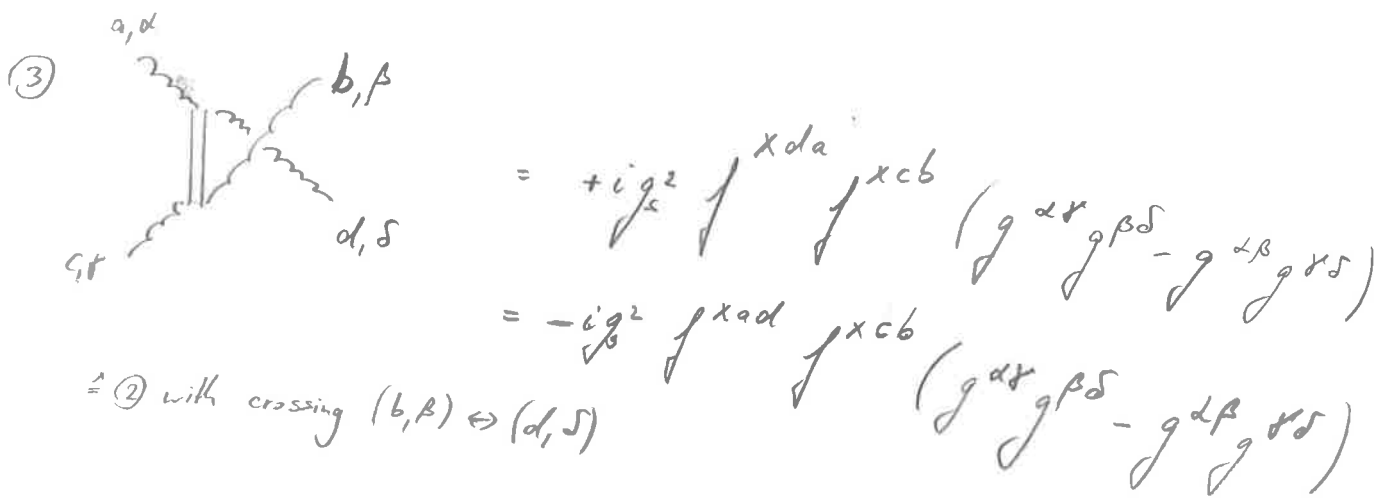 a,α
③
b,β
= +i g_s^2 f^{xda} f^{xcb} (g^{αγ} g^{βδ} - g^{αβ} g^{γδ})
d,δ
c,γ
= -i g_s^2 f^{xad} f^{xcb} (g^{αγ} g^{βδ} - g^{αβ} g^{γδ})
≙ ② with crossing (b,β) ↔ (d,δ)